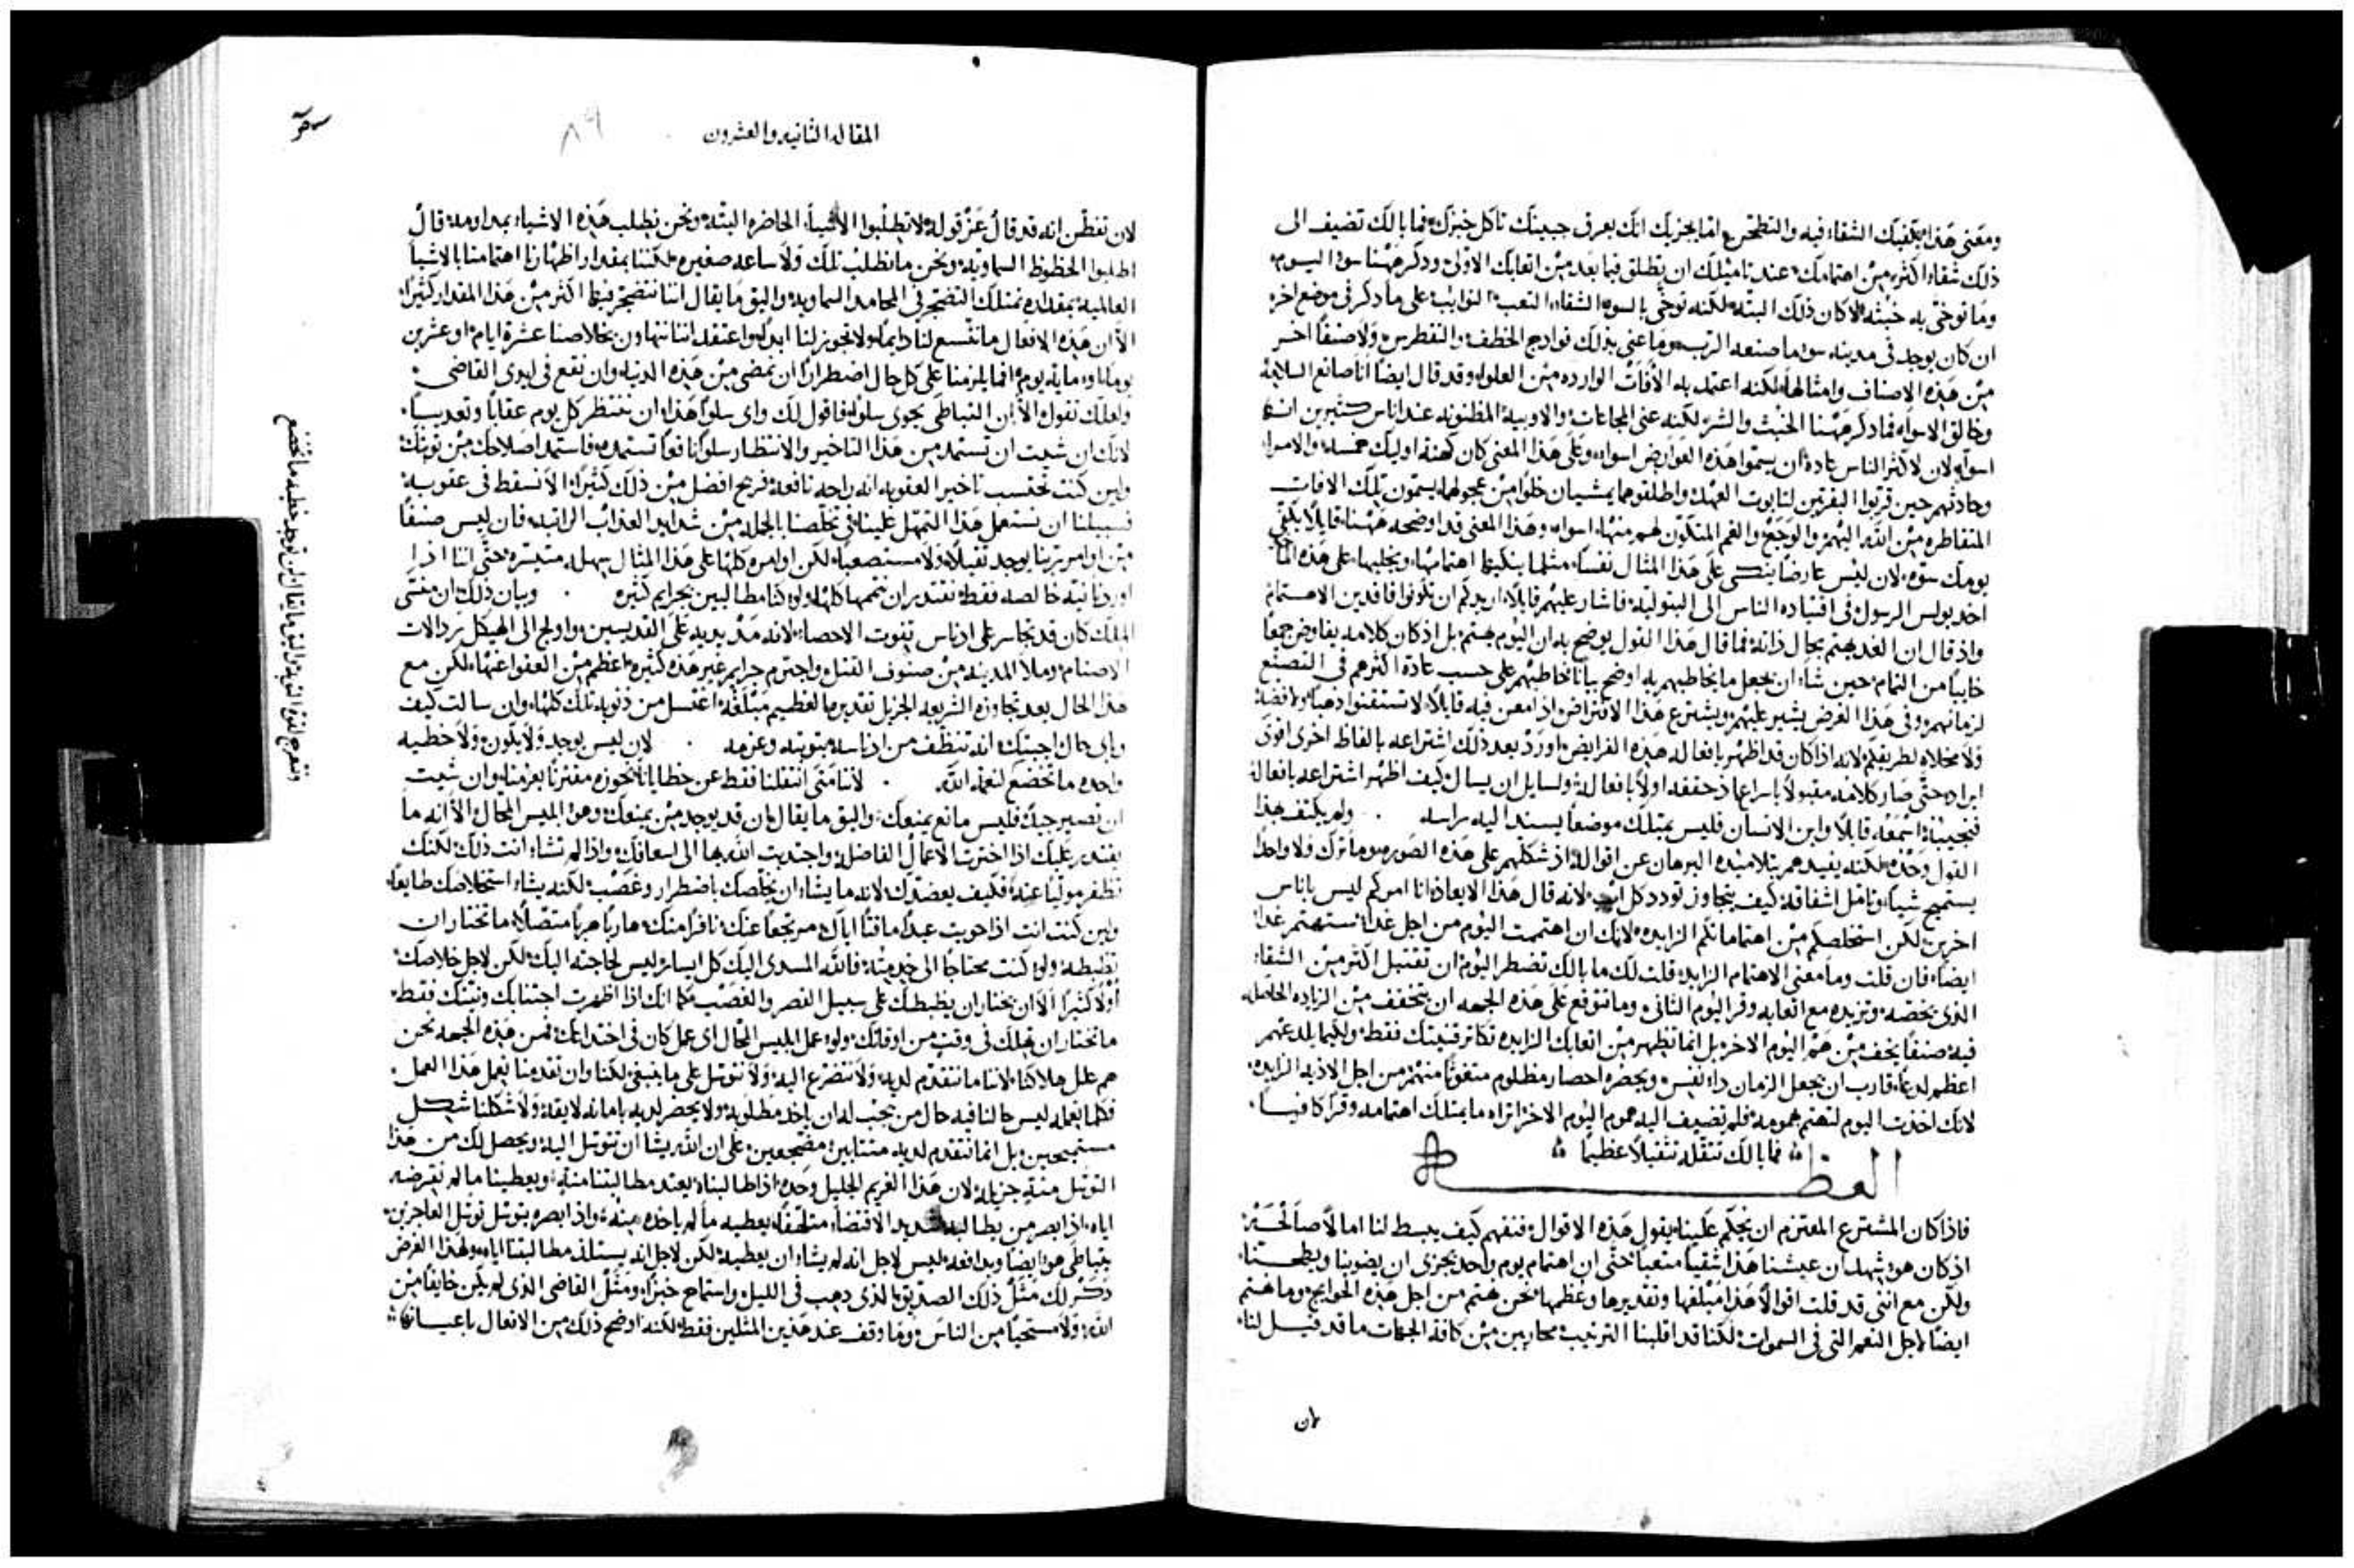 ومعنى هذا يكفيك الشقاء فيه والتطحن انما يجزيك انك بعرق جبينك تاكل خبزك فما بالك تضيف الى
ذلك شقاء اكثر من اهتمامك عند تاميلك ان تطلق فيما بعد من اتعابك الاولى وذكر ههنا سوء اليوم
وما توخى به خبثه لا كان ذلك البته لكنه توخى بالسوء الشقاء التعب النوايب على ما ذكر في موضع اخر
ان كان يوجد في مدينه سوء ما صنعه الرب وما عنى بذلك نوادج الخطف والتغطرس ولا صنفا اخر
من هذه الاصناف وامثالها لكنه اعتمد به الآفات الوارده من العلو وقد قال ايضا انا صانع السلامه
وخالق الاسواء فما ذكر ههنا الخبث والشر لكنه عنى المجاعات والاوبيه المظنونه عند اناس كثيرين انها
اسواء لان لاكثر الناس عادة ان يسموا هذه العوارض اسواء وعلى هذا المعنى كان كهنة اوليك خمسه والامراء
وحادثهم حين قربوا البقرتين لتابوت العهد واطلقوهما يمشيان خلوا من عجولهما يسمون تلك الافات
المتقاطره من الله اليهم والوجع والغم المتكون لهم منها اسواء وهذا المعنى قد اوضحه ههنا قايلا يكفي
يومك سوه لان ليس عارضا ينكي على هذا المثال نفسا مثلما ينكيها اهتمامها ويجلبها على هذه
اخذ بولس الرسول في اقتياده الناس الى البتولية فاشار عليهم قايلا اريدكم ان تكونوا فاقدين الاهتمام
واذ قال ان الغد يهتم بحال ذاته فما قال هذا القول يوضح به ان اليوم يهتم بل اذ كان كلامه يفاوض جمعا
خايبا من التمام حين شاء ان يجعل ما يخاطبهم به اوضح بيانا خاطبهم على حسب عادة اكثرهم في التصنع
لزمانهم وفي هذا الغرض يشير عليهم ويشترع هذا الافتراض اذ امعن فيه قايلا لا تستقنوا ذهبا ولا فضة
ولا مخلاه لطريقكم لانه اذا كان قد اظهر بافعاله هذه الفرايض اورد بعد ذلك اشتراعه بالفاظ اخرى اقوى
ايراده حتى صار كلامه مقبولا باسراع اذ حققه اولا بافعاله ولسايل ان يسال كيف اظهر اشتراعه بافعاله
فنجيبه اسمعه قايلا وابن الانسان فليس يمتلك موضعا يسند اليه راسه . ولم يكتف بهذا
القول وحده لكنه يفيدهم بتلاميذه البرهان عن اقواله اذ شكلهم على هذه الصوره وما ترك ولا واحدا
يستميح شيا وتامل اشفاقه كيف يتجاوز تودد كل اب لانه قال هذا الايعاز انا امركم ليس باناس
اخرين لكن استخلصكم من اهتماماتكم الزايده لانك ان اهتممت اليوم من اجل غد ستهتم غدا
ايضا فان قلت وما معنى الاهتمام الزايد قلت لك ما بالك تضطر اليوم ان تقتبل اكثر من الشقاء
الذي يخصه وتزيده مع اتعابه وقر اليوم الثاني وما تتوقع على هذه الجهه ان يتخفف من الزياده الحاصله
فيه صنفا يخف من هم اليوم الاخر بل انما تظهر من اتعابك الزايده تكاثر قنيتك فقط ولكيما يلدعهم
اعظم لدعا قارب ان يجعل الزمان ذا نفس ويحضره احصار مظلوم متغوثا منهم من اجل الاذيه الزايده
لانك اخذت اليوم لتهتم بهمومه فلم تضيف اليه هموم اليوم الاخر اتراه ما يمتلك اهتمامه وقرا كافيا
فما بالك تثقله تثقيلا عظيما
العظه
فاذا كان المشترع المعتزم ان يحكم علينا يقول هذه الاقوال فنفهم كيف يبسط لنا امالا صالحة
اذ كان هو يشهد ان عيشنا هذا شقيا متعبا حتى ان اهتمام يوم واحد يجزى ان يضوينا ويطحنا
ولكن مع انني قد قلت اقوالا هذا مبلغها وتقديرها وعظمها نحن نهتم من اجل هذه الحوايج وما نهتم
ايضا لاجل النعم التي في السموات لكنا قد اقلبنا الترتيب محاربين من كافة الجهات ما قد قيل لنا
لان
المقاله الثانيه والعشرون
٨٩
لان تفطن انه قد قال عز قوله لا تطلبوا الاشياء الحاضره البته ونحن نطلب هذه الاشياء بمداومه قال
اطلبوا الحظوظ السماويه ونحن ما نطلب تلك ولا ساعه صغيره لكننا بمقدار اظهارنا اهتمامنا بالاشيا
العالمية بمقداره نمتلك التضجر في المحامد السماويه واليق ما يقال اننا نتضجر فيها اكثر من هذا المقدار كثيرا
الا ان هذه الافعال ما تتسع لنا دايما ولا تجوز لنا ابدا واعتقد اننا نتهاون بخلاصنا عشرة ايام او عشرين
يوما او مايه يوم انما يلزمنا على كل حال اضطرارا ان نمضي من هذه الدنيا وان نقع في ايدي القاضي
ولعلك تقول الا ان التباطي يحوي سلوا فاقول لك واي سلوا هذا ان ننتظر كل يوم عقابا وتعذيبا
لانك ان شيت ان تستمد من هذا التاخير والانتظار سلوا نافعا تستمده فاستمد اصلاحك من توبتك
ولين كنت تحتسب تاخير العقوبه انه راحه نافعة فربح افضل من ذلك كثيرا الا نسقط في عقوبة
فسبيلنا ان نستعمل هذا التمهل علينا في تخلصنا بالجمله من شدايد العذاب الراتبه فان ليس صنفا
من اوامر ربنا يوجد ثقيلا ولا مستصعبا لكن اوامره كلها على هذا المثال سهله متيسره حتى اننا اذا
اوردنا نية خالصه فقط نقتدر ان نتممها كلها ولو كنا مطالبين بجرايم كثيره . وبيان ذلك ان منشى
الملك كان قد تجاسر على ادناس يفوت الاحصاء لانه مد يديه على القديسين واولج الى الهيكل رذالات
الاصنام وملا المدينه من صنوف القتل واجترم جرايم غير هذه كثيره اعظم من العفو اعنها لكن مع
هذا الحال بعد تجاوزه الشريعه الجزيل تقديرها العظيم مبلغه اغتسل من ذنوبه تلك كلها وان سالت كيف
وباي حال اجبتك انه تنظف من ادناسه بتوبته وعزمه . لان ليس يوجد ولا يكون ولا خطيه
واحده ما تخضع لنعمة الله . لاننا متى انتقلنا فقط عن خطايانا تحوزه مقترنا بعزمنا وان شيت
ان تصير جيدا فليس مانع يمنعك واليق ما يقال ان قد يوجد من يمنعك وهو ابليس المحال الا انه ما
يقتدر عليك اذا اخترت الاعمال الفاضله واجتذبت الله بها الى اسعافك واذا لم تشاء انت ذلك لكنك
تظفر موليا عنه فكيف يعضدك لانه ما يشاء ان يخلصك باضطرار وغصب لكنه يشاء استخلاصك طايعا
ولين كنت انت اذا حويت عبدا ماقتا اياك مرتجعا عنك نافرا منك هاربا هربا متصلا ما تختار ان
تظبطه ولو كنت محتاجا الى خدمته فالله المسدي اليك كل ايساره ليس لحاجته اليك لكن لاجل خلاصك
اولا كثيرا الا ان يختار ان يظبطك على سبيل القصر والغصب كما انك اذا اظهرت اجتنابك ونيتك فقط
ما تختار ان يهملك في وقت من اوقاتك ولو عمل ابليس المحال اي عمل كان في اختداعك فمن هذه الجهه نحن
هم علل هلاكنا لاننا ما نتقدم لديه ولا نتضرع اليه ولا نتوسل على ما ينبغي لكنا وان تقدمنا نعمل هذا العمل
فكلما نعمله ليس حالنا فيه حال من يجب له ان ياخذ مطلوبه ولا يحضر لديه بامانه لايقة ولا شكلنا شكل
مستميحين بل انما نتقدم لديه متثايبين مضجعين على ان الله يشا ان نتوسل اليه ويحصل لك من هذا
التوسل منة جزيلة لان هذا الغريم الجليل وحده اذا طالبناه يعتد مطالبتنا منة ويعطينا ما لم نقرضه
اياه اذ ابصر من يطالبه شديد الاقتضاء متلهفا يعطيه ما لم ياخذه منه واذا ابصره يتوسل توسل العاجزين
يتباطى هو ايضا ويدافعه ليس لاجل انه لم يشاء ان يعطيه لكن لاجل انه يستلذ مطالبتنا اياه ولهذا الغرض
ذكر لك مثل ذلك الصديق الذي ذهب في الليل واستماح خبزا ومثل القاضي الذي لم يكن خايفا من
الله ولا مستحيا من الناس وما وقف عند هذين المثلين فقط لكنه اوضح ذلك من الافعال باعيانها